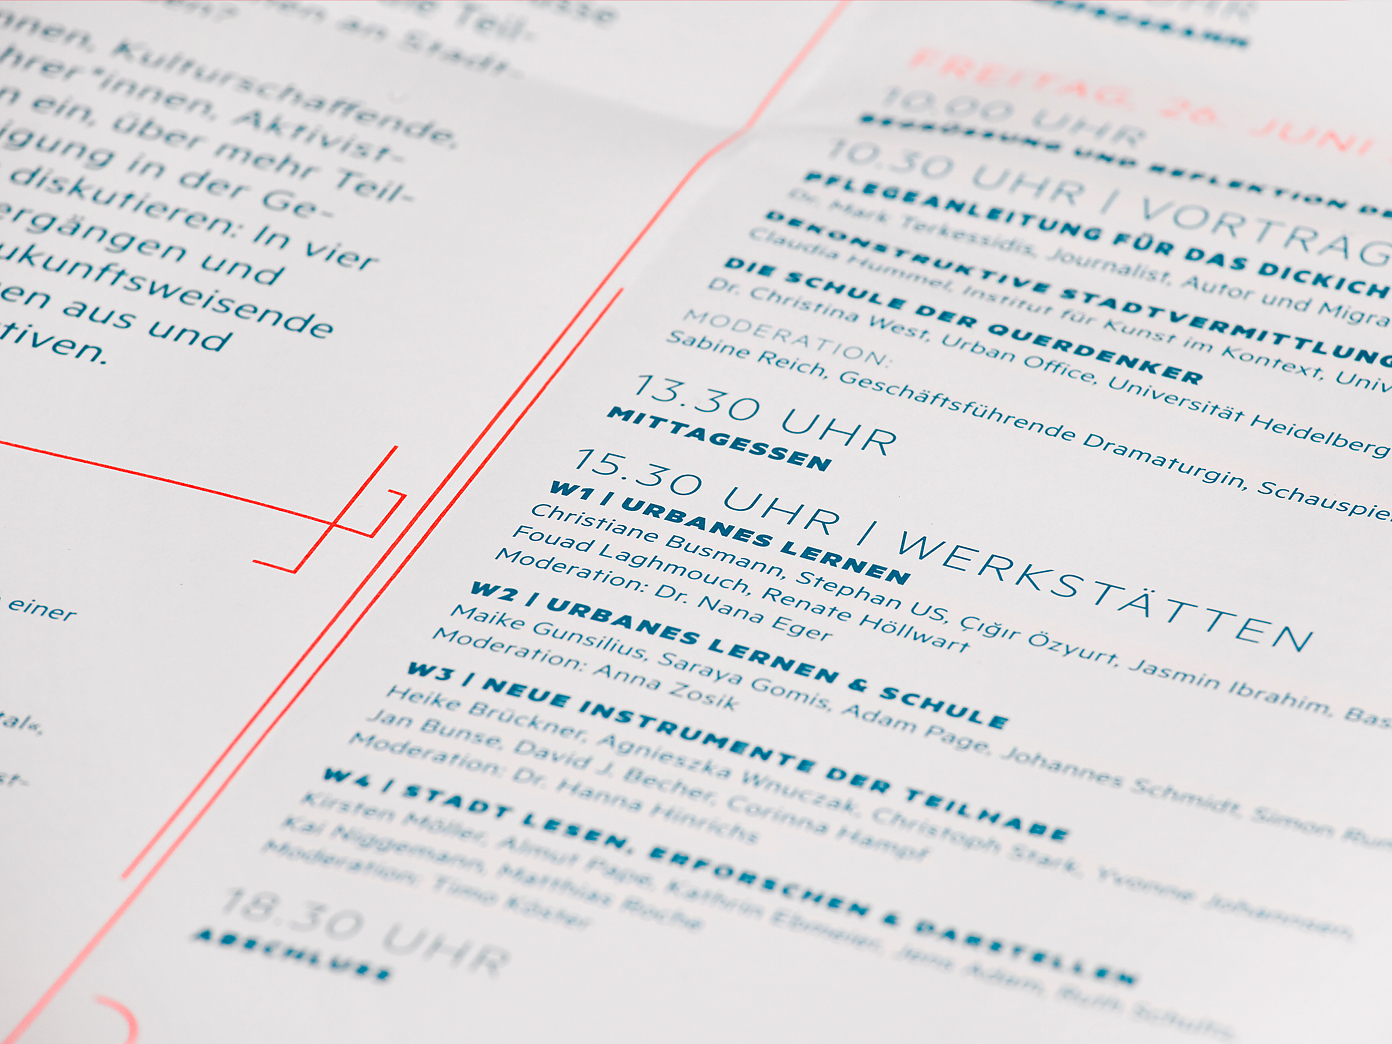 Teil-
en an Stadt-
nnen, Kulturschaffende,
hrer*innen, Aktivist-
n ein, über mehr Teil-
igung in der Ge-
diskutieren: In vier
ergängen und
ukunftsweisende
en aus und
tiven.
einer
tal«,
st-
UHR
FREITAG, 26. JUNI
10.00 UHR
BEGRÜSSUNG UND REFLEKTION DE
10.30 UHR | VORTRÄG
PFLEGEANLEITUNG FÜR DAS DICKICH
Dr. Mark Terkessidis, Journalist, Autor und Migra
DEKONSTRUKTIVE STADTVERMITTLUNG
Claudia Hummel, Institut für Kunst im Kontext, Univ
DIE SCHULE DER QUERDENKER
Dr. Christina West, Urban Office, Universität Heidelberg
MODERATION:
Sabine Reich, Geschäftsführende Dramaturgin, Schauspie
13.30 UHR
MITTAGESSEN
15.30 UHR | WERKSTÄTTEN
W1 | URBANES LERNEN
Christiane Busmann, Stephan US, Çığır Özyurt, Jasmin Ibrahim, Bas
Fouad Laghmouch, Renate Höllwart
Moderation: Dr. Nana Eger
W2 | URBANES LERNEN & SCHULE
Maike Gunsilius, Saraya Gomis, Adam Page, Johannes Schmidt, Simon Run
Moderation: Anna Zosik
W3 | NEUE INSTRUMENTE DER TEILHABE
Heike Brückner, Agnieszka Wnuczak, Christoph Stark, Yvonne Johannsen,
Jan Bunse, David J. Becher, Corinna Hampf
Moderation: Dr. Hanna Hinrichs
W4 | STADT LESEN, ERFORSCHEN & DARSTELLEN
Kirsten Möller, Almut Pape, Kathrin Ebmeier, Jens Adam, Ruth Schultz,
Kai Niggemann, Matthias Roche
Moderation: Timo Köster
18.30 UHR
ABSCHLUSS